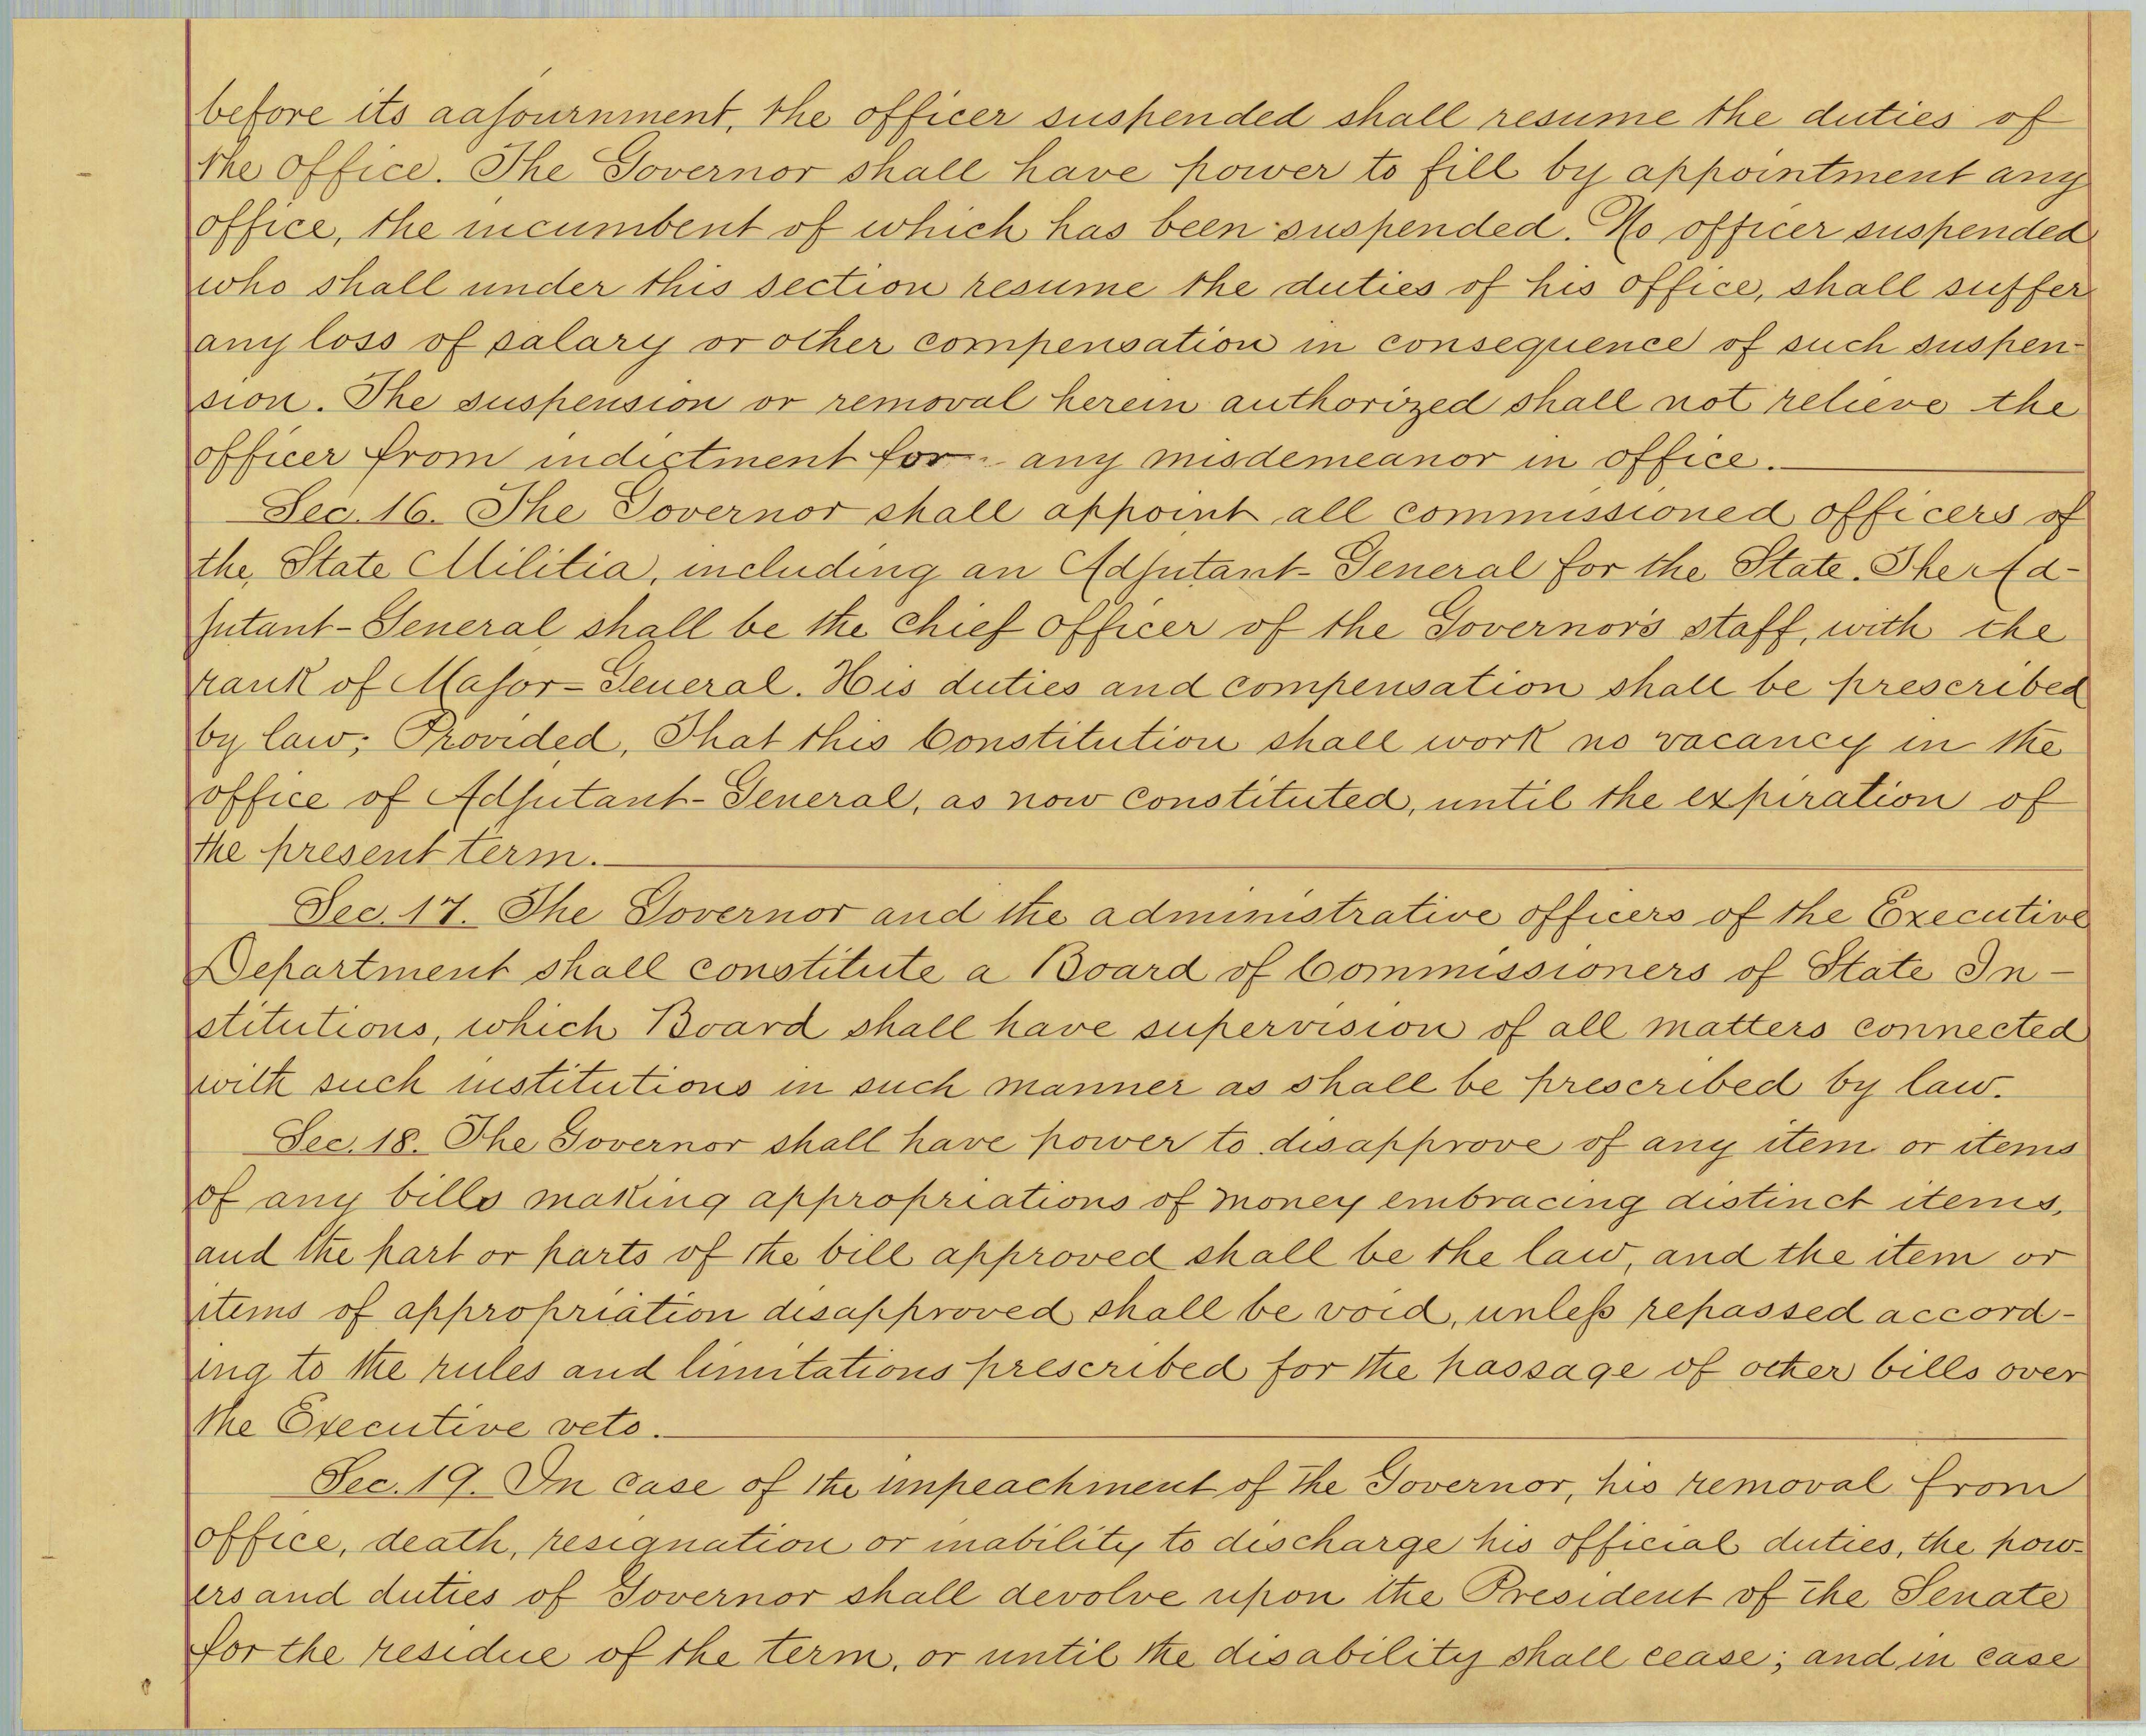 before its adjournment, the officer suspended shall resume the duties of
the office. The Governor shall have power to fill by appointment any
office, the incumbent of which has been suspended. No officer suspended
who shall under this section resume the duties of his office, shall suffer
any loss of salary or other compensation in consequence of such suspen-
sion. The suspension or removal herein authorized shall not relieve the
officer from indictment for any misdemeanor in office.
Sec. 16. The Governor shall appoint all commissioned officers of
the State Militia, including an Adjutant-General for the State. The Ad-
jutant-General shall be the chief officer of the Governor's staff, with the
rank of Major-General. His duties and compensation shall be prescribed
by law; Provided, That this Constitution shall work no vacancy in the
office of Adjutant-General, as now constituted, until the expiration of
the present term.
Sec. 17. The Governor and the administrative officers of the Executive
Department shall constitute a Board of Commissioners of State In-
stitutions, which Board shall have supervision of all matters connected
with such institutions in such manner as shall be prescribed by law.
Sec. 18. The Governor shall have power to disapprove of any item or items
of any bills making appropriations of money embracing distinct items,
and the part or parts of the bill approved shall be the law, and the item or
items of appropriation disapproved shall be void, unless repassed accord-
ing to the rules and limitations prescribed for the passage of other bills over
the Executive veto.
Sec. 19. In case of the impeachment of the Governor, his removal from
office, death, resignation or inability to discharge his official duties, the pow-
ers and duties of Governor shall devolve upon the President of the Senate
for the residue of the term, or until the disability shall cease; and in case